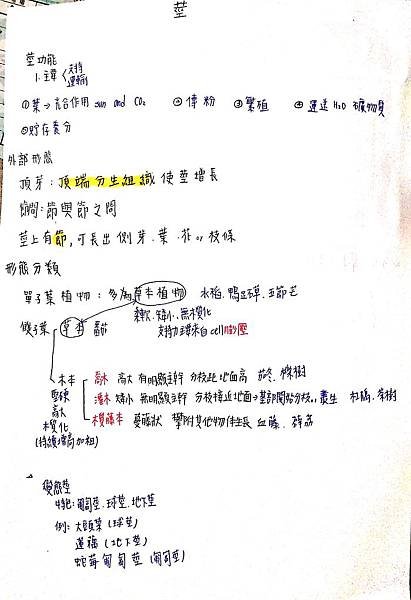 莖
莖功能
1.主章 支持 運輸
①葉→光合作用 sun and CO2 ②傳粉 ③繁殖 ④運送 H2O 礦物質
⑤貯存養分
外部形態
頂芽:頂端分生組織使莖增長
節間:節與節之間
莖上有節,可長出側芽.葉.花or枝條
形態分類
單子葉植物:多為草本植物 水稻.鴨跖草.五節芒
柔軟.矮小.無木質化
雙子葉 草本 支持力主要來自cell膨壓
木本 喬木 高大 有明顯主幹 分枝距地面高 茄冬.樟樹
堅硬 灌木 矮小 無明顯主幹 分枝接近地面→基部開始分枝or叢生 杜鵑.
高大 木質藤本 蔓藤狀 攀附其他物件生長
木質化
(持續增高加粗)
變態莖
特化:匍匐莖.球莖.地下莖
例:大頭菜(球莖)
蓮藕(地下莖)
蛇莓匍匐莖(匍匐莖)